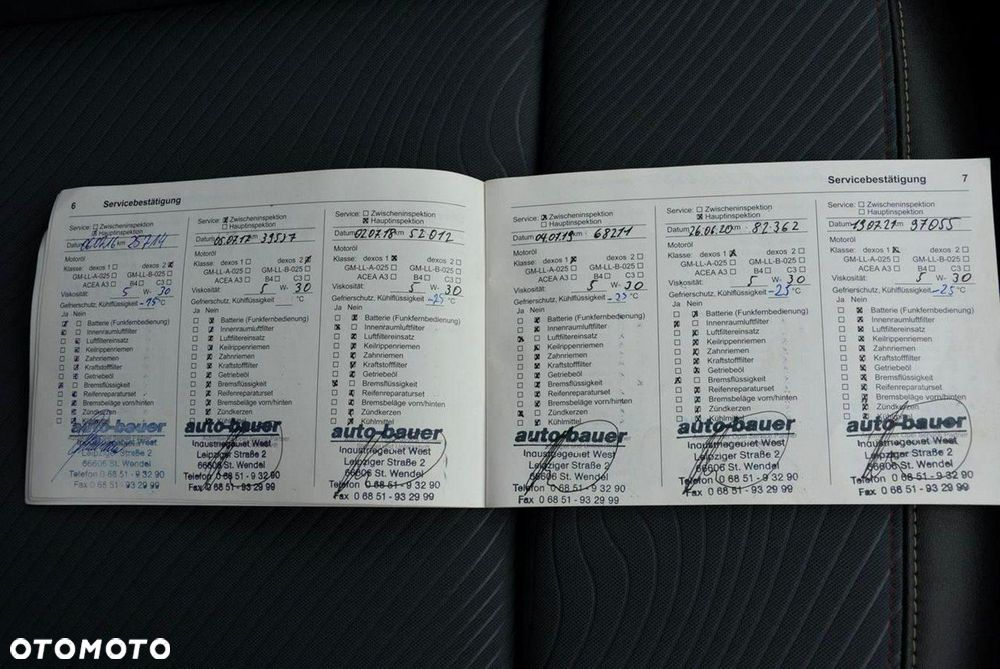 6 Servicebestätigung
Service: Zwischeninspektion
Hauptinspektion
Datum km 25714
Motoröl
Klasse: dexos 1 dexos 2
GM-LL-A-025 GM-LL-B-025
ACEA A3 B4 C3
Viskosität: 5 W- 30
Gefrierschutz, Kühlflüssigkeit -15 °C
Ja Nein
Batterie (Funkfernbedienung)
Innenraumluftfilter
Luftfiltereinsatz
Keilrippenriemen
Zahnriemen
Kraftstofffilter
Getriebeöl
Bremsflüssigkeit
Reifenreparaturset
Bremsbeläge vorn/hinten
Zündkerzen
auto-bauer
Industriegebiet West
Leipziger Straße 2
66606 St. Wendel
Telefon 0 68 51 - 9 32 90
Fax 0 68 51 - 93 29 99
Service: Zwischeninspektion
Hauptinspektion
Datum 05.07.17 km
Motoröl
Klasse: dexos 1 dexos 2
GM-LL-A-025 GM-LL-B-025
ACEA A3 B4 C3
Viskosität: 5 W- 30
Gefrierschutz, Kühlflüssigkeit °C
Ja Nein
Batterie (Funkfernbedienung)
Innenraumluftfilter
Luftfiltereinsatz
Keilrippenriemen
Zahnriemen
Kraftstofffilter
Getriebeöl
Bremsflüssigkeit
Reifenreparaturset
Bremsbeläge vorn/hinten
Zündkerzen
Kühlmittel
auto-bauer
Industriegebiet West
Leipziger Straße 2
66606 St. Wendel
Telefon 0 68 51 - 9 32 90
Fax 0 68 51 - 93 29 99
Service: Zwischeninspektion
Hauptinspektion
Datum 02.07.18 km 52012
Motoröl
Klasse: dexos 1 dexos 2
GM-LL-A-025 GM-LL-B-025
ACEA A3 B4 C3
Viskosität: 5 W- 30
Gefrierschutz, Kühlflüssigkeit -25 °C
Ja Nein
Batterie (Funkfernbedienung)
Innenraumluftfilter
Luftfiltereinsatz
Keilrippenriemen
Zahnriemen
Kraftstofffilter
Getriebeöl
Bremsflüssigkeit
Reifenreparaturset
Bremsbeläge vorn/hinten
Zündkerzen
Kühlmittel
auto-bauer
Industriegebiet West
Leipziger Straße 2
66606 St. Wendel
Telefon 0 68 51 - 9 32 90
Fax 0 68 51 - 93 29 99
Servicebestätigung 7
Service: Zwischeninspektion
Hauptinspektion
Datum 04.07.19 km 68211
Motoröl
Klasse: dexos 1 dexos 2
GM-LL-A-025 GM-LL-B-025
ACEA A3 B4 C3
Viskosität: 5 W- 30
Gefrierschutz, Kühlflüssigkeit °C
Ja Nein
Batterie (Funkfernbedienung)
Innenraumluftfilter
Luftfiltereinsatz
Keilrippenriemen
Zahnriemen
Kraftstofffilter
Getriebeöl
Bremsflüssigkeit
Reifenreparaturset
Bremsbeläge vorn/hinten
Zündkerzen
Kühlmittel
auto-bauer
Industriegebiet West
Leipziger Straße 2
66606 St. Wendel
Telefon 0 68 51 - 9 32 90
Fax 0 68 51 - 93 29 99
Service: Zwischeninspektion
Hauptinspektion
Datum 26.06.20 82.362
Motoröl
Klasse: dexos 1 dexos 2
GM-LL-A-025 GM-LL-B-025
ACEA A3 B4 C3
Viskosität: 5 W- 30
Gefrierschutz, Kühlflüssigkeit -25 °C
Ja Nein
Batterie (Funkfernbedienung)
Innenraumluftfilter
Luftfiltereinsatz
Keilrippenriemen
Zahnriemen
Kraftstofffilter
Getriebeöl
Bremsflüssigkeit
Reifenreparaturset
Bremsbeläge vorn/hinten
Zündkerzen
Kühlmittel
auto-bauer
Industriegebiet West
Leipziger Straße 2
66606 St. Wendel
Telefon 0 68 51 - 9 32 90
Fax 0 68 51 - 93 29 99
Service: Zwischeninspektion
Hauptinspektion
Datum 19.07.21 km 97055
Motoröl
Klasse: dexos 1 dexos 2
GM-LL-A-025 GM-LL-B-025
ACEA A3 B4 C3
Viskosität: 5 W- 30
Gefrierschutz, Kühlflüssigkeit -25 °C
Ja Nein
Batterie (Funkfernbedienung)
Innenraumluftfilter
Luftfiltereinsatz
Keilrippenriemen
Zahnriemen
Kraftstofffilter
Getriebeöl
Bremsflüssigkeit
Reifenreparaturset
Bremsbeläge vorn/hinten
Zündkerzen
Kühlmittel
auto-bauer
Industriegebiet West
Leipziger Straße 2
66606 St. Wendel
Telefon 0 68 51 - 9 32 90
Fax 0 68 51 - 93 29 99
OTOMOTO